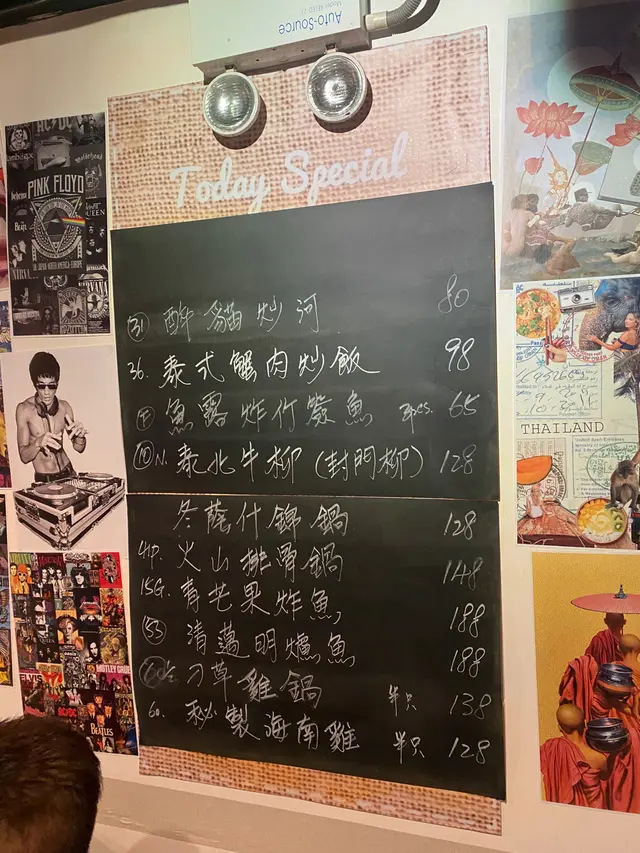 Auto-Source
Today Special
AC/DC
Motörhead
PINK FLOYD
QUEEN
NIRVANA
31 醉貓炒河 80
36. 泰式蟹肉炒飯 98
魚露炸竹簽魚 3pcs. 65
10 N. 泰北牛柳(封門柳) 128
冬蔭什錦鍋 128
41P. 火山排骨鍋 148
15G. 青芒果炸魚 188
53 清邁明爐魚 188
刁草雞鍋 半只 138
60. 秘製海南雞 半只 128
THAILAND
MOTLEY CRUE
ELVIS
AC/DC
BEATLES